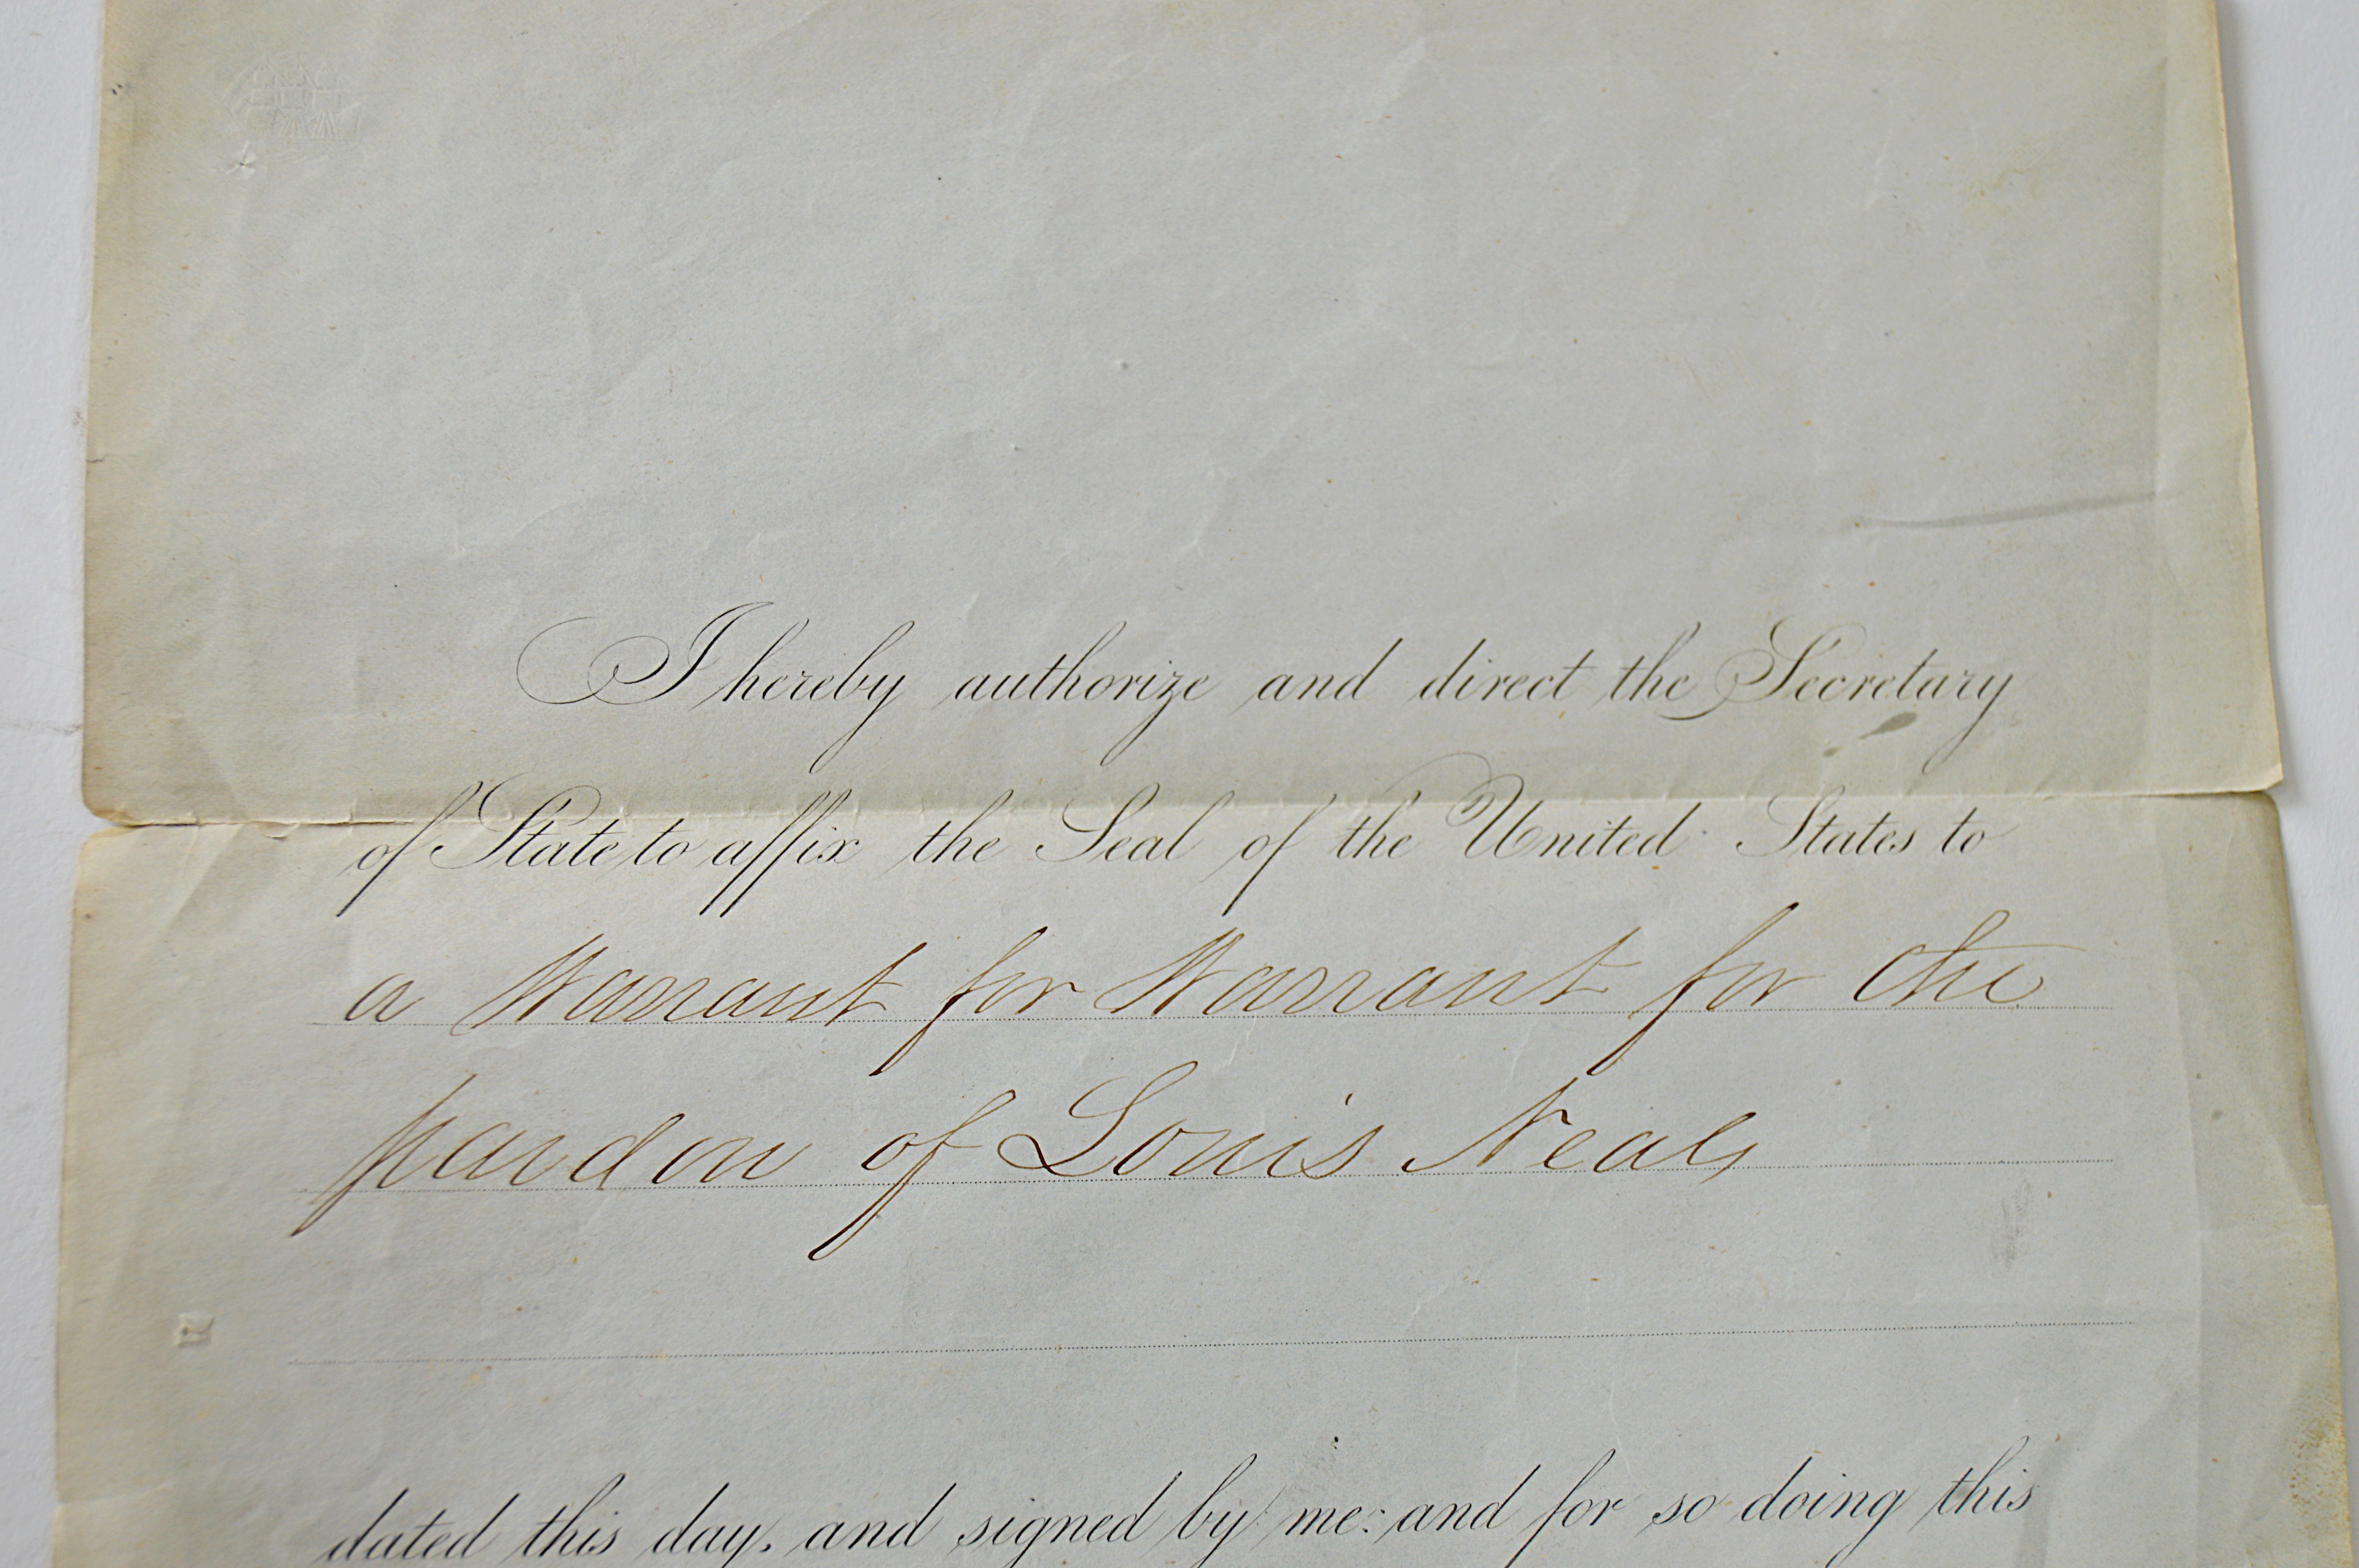 I hereby authorize and direct the Secretary
of State to affix the Seal of the United States to
a Warrant for Warrant for the
pardon of Louis Neal,
dated this day, and signed by me: and for so doing this